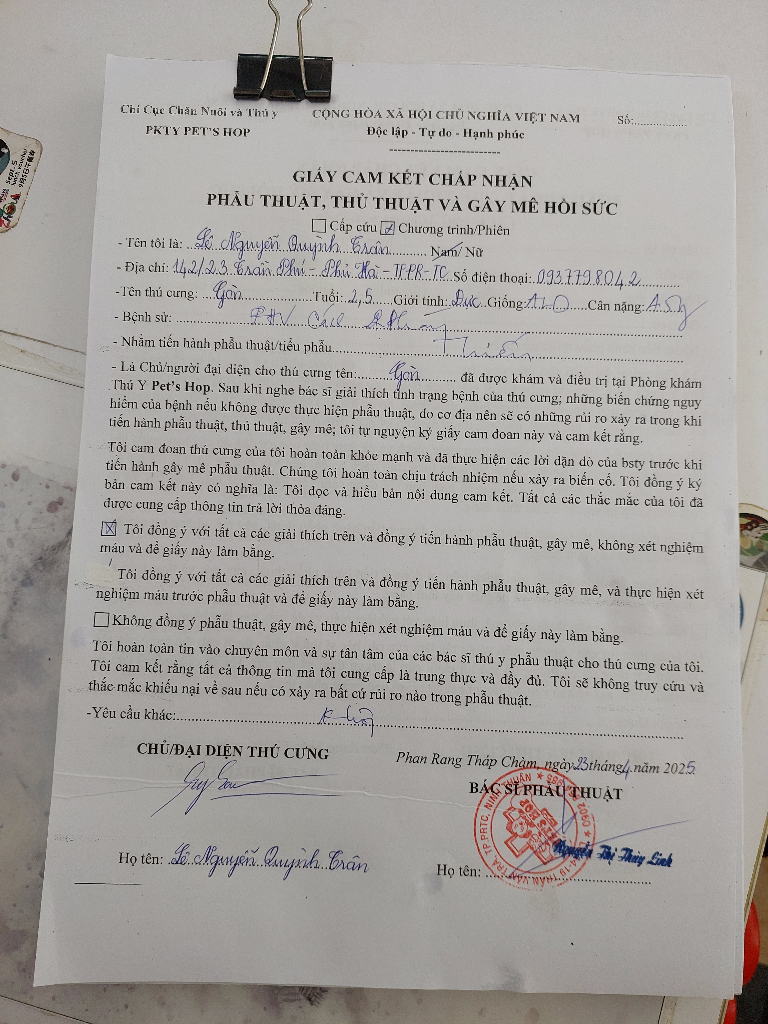 Chi Cục Chăn Nuôi và Thú y CỘNG HÒA XÃ HỘI CHỦ NGHĨA VIỆT NAM Số:................
PKTY PET'S HOP Độc lập - Tự do - Hạnh phúc
GIẤY CAM KẾT CHẤP NHẬN
PHẪU THUẬT, THỦ THUẬT VÀ GÂY MÊ HỒI SỨC
Cấp cứu Chương trình/Phiên
- Tên tôi là: Lê Nguyễn Quỳnh Trân Nam/ Nữ
- Địa chỉ: 142/23 Trần Phú - Phủ Hà - TP.PR-TC Số điện thoại: 0937798042
-Tên thú cưng: Gòn Tuổi: 2,5 Giới tính: Đực Giống: ALD Cân nặng:
- Bệnh sử:
- Nhằm tiến hành phẫu thuật/tiểu phẫu
- Là Chủ/người đại diện cho thú cưng tên: Gòn đã được khám và điều trị tại Phòng khám
Thú Y Pet's Hop. Sau khi nghe bác sĩ giải thích tình trạng bệnh của thú cưng; những biến chứng nguy
hiểm của bệnh nếu không được thực hiện phẫu thuật, do cơ địa nên sẽ có những rủi ro xảy ra trong khi
tiến hành phẫu thuật, thủ thuật, gây mê; tôi tự nguyện ký giấy cam đoan này và cam kết rằng.
Tôi cam đoan thú cưng của tôi hoàn toàn khỏe mạnh và đã thực hiện các lời dặn dò của bsty trước khi
tiến hành gây mê phẫu thuật. Chúng tôi hoàn toàn chịu trách nhiệm nếu xảy ra biến cố. Tôi đồng ý ký
bản cam kết này có nghĩa là: Tôi đọc và hiểu bản nội dung cam kết. Tất cả các thắc mắc của tôi đã
được cung cấp thông tin trả lời thỏa đáng.
Tôi đồng ý với tất cả các giải thích trên và đồng ý tiến hành phẫu thuật, gây mê, không xét nghiệm
máu và để giấy này làm bằng.
Tôi đồng ý với tất cả các giải thích trên và đồng ý tiến hành phẫu thuật, gây mê, và thực hiện xét
nghiệm máu trước phẫu thuật và để giấy này làm bằng.
Không đồng ý phẫu thuật, gây mê, thực hiện xét nghiệm máu và để giấy này làm bằng.
Tôi hoàn toàn tin vào chuyên môn và sự tân tâm của các bác sĩ thú y phẫu thuật cho thú cưng của tôi.
Tôi cam kết rằng tất cả thông tin mà tôi cung cấp là trung thực và đầy đủ. Tôi sẽ không truy cứu và
thắc mắc khiếu nại về sau nếu có xảy ra bất cứ rủi ro nào trong phẫu thuật.
-Yêu cầu khác: không
CHỦ/ĐẠI DIỆN THÚ CƯNG Phan Rang Tháp Chàm, ngày 23 tháng 4 năm 2025
BÁC SĨ PHẪU THUẬT
Nguyễn Thị Thùy Linh
Họ tên: Lê Nguyễn Quỳnh Trân Họ tên: